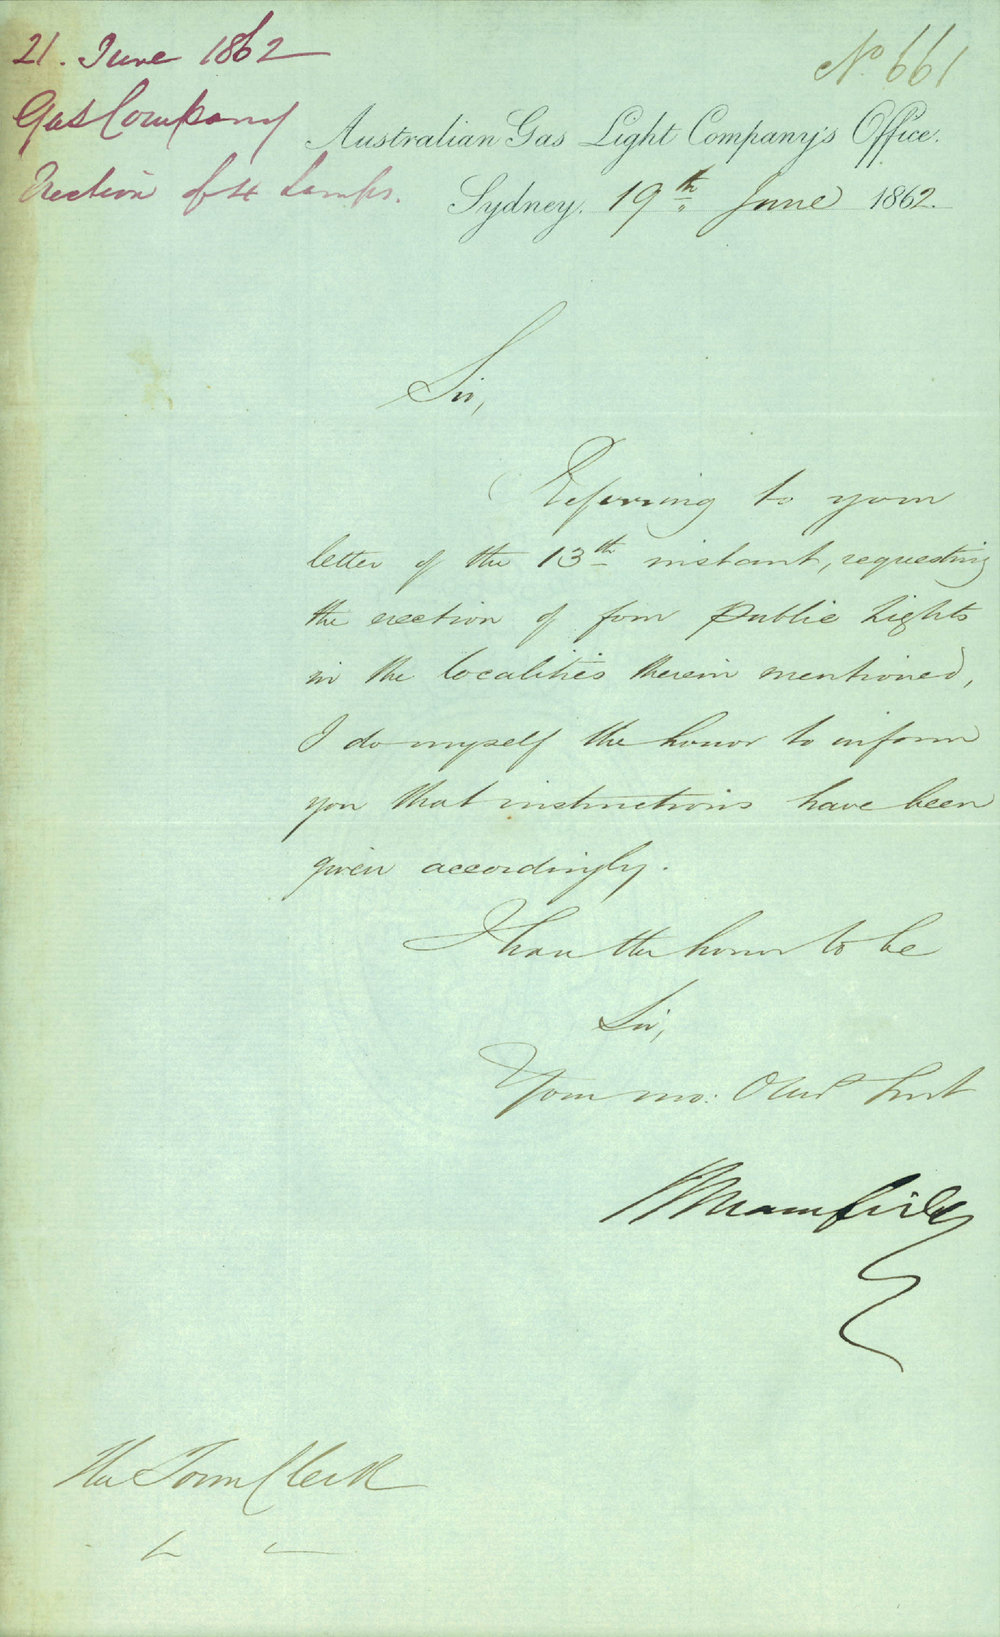 21. June 1862
Gas Company
Erection of 4 Lamps.
No. 661
Australian Gas Light Company's Office.
Sydney, 19th June 1862.
Sir,
Referring to your
letter of the 13th instant, requesting
the erection of four Public Lights
in the localities therein mentioned,
I do myself the honor to inform
you that instructions have been
given accordingly.
I have the honor to be
Sir,
Your mo: Obed Servt
Mansfield
The Town Clerk